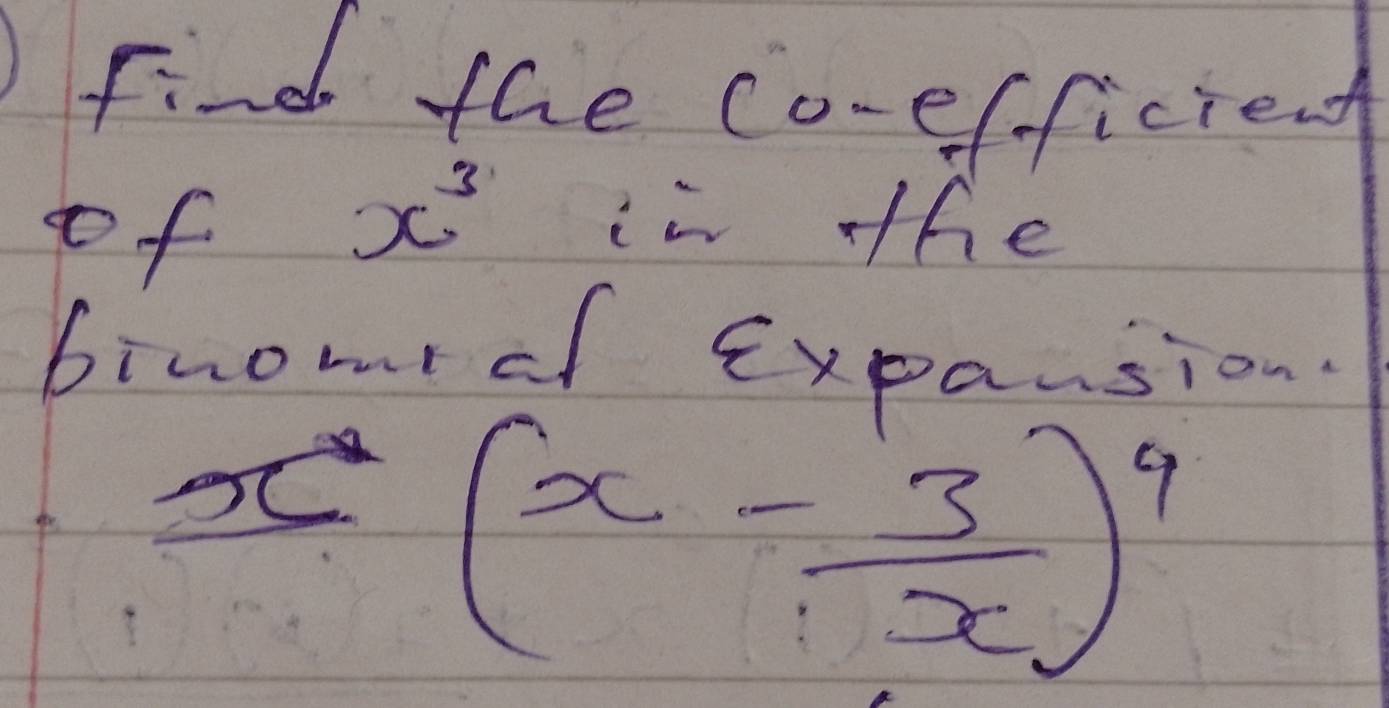 Find the Co-efficient
of x³ in the
binomial Expansion.
(x - 3/x)⁹